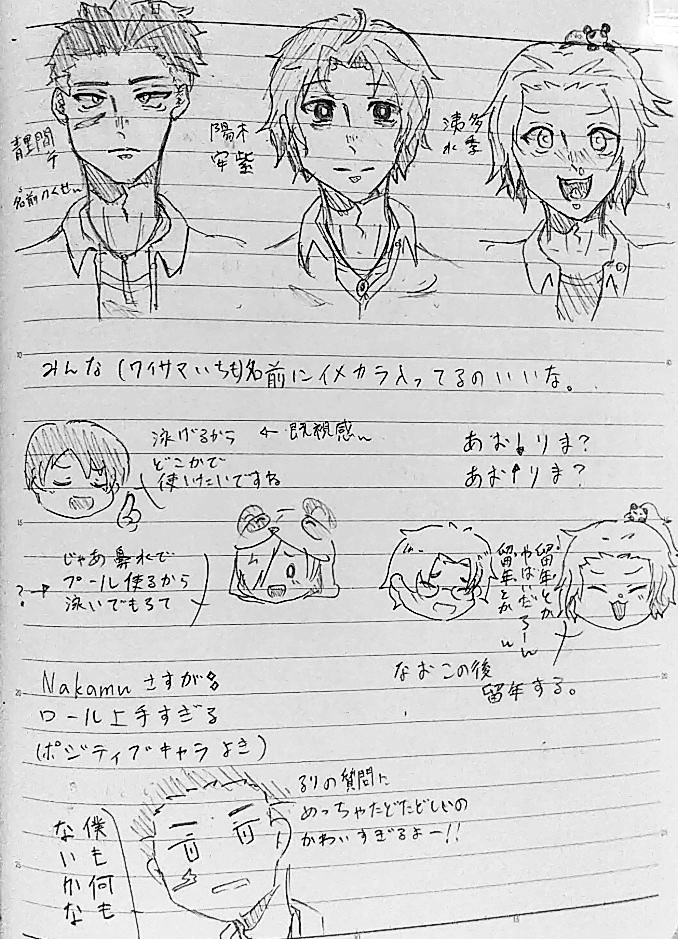 青里間
名前カくせぃ
陽木
窄紫
湊多
水季
みんな(ワイサマいちも)名前にイメカラ入ってるのいいな。
泳げるから
どこかで
使いたいですね
← 既視感w
あお↓りま?
あお↑りま?
じゃあ鼻水で
プール作るから
泳いでもろて
?→
留年とか
やばいだろーw
留年とかw
なおこの後
留年する。
Nakamuさすが多
ロール上手すぎる
(ポジティブキャラよき)
るりの質問に
めっちゃたどたどしいの
かわいすぎるよー!!
僕も何も
ないかな